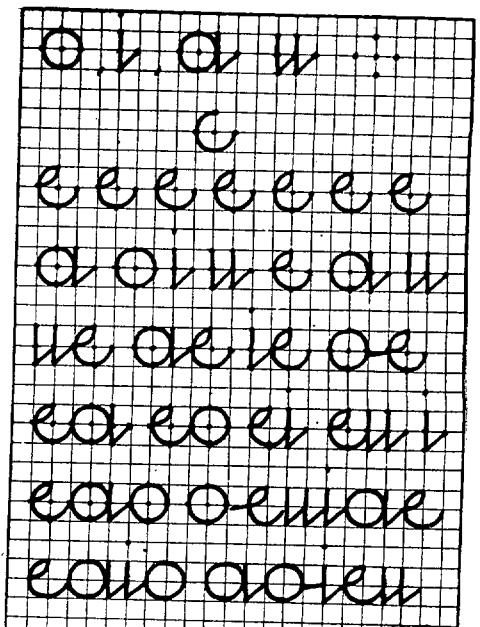 o i a u
c
e e e e e e e
a o i u e a u
ue ae ie oe
ea eo ei eui
eao oeuiae
eaio aoieu